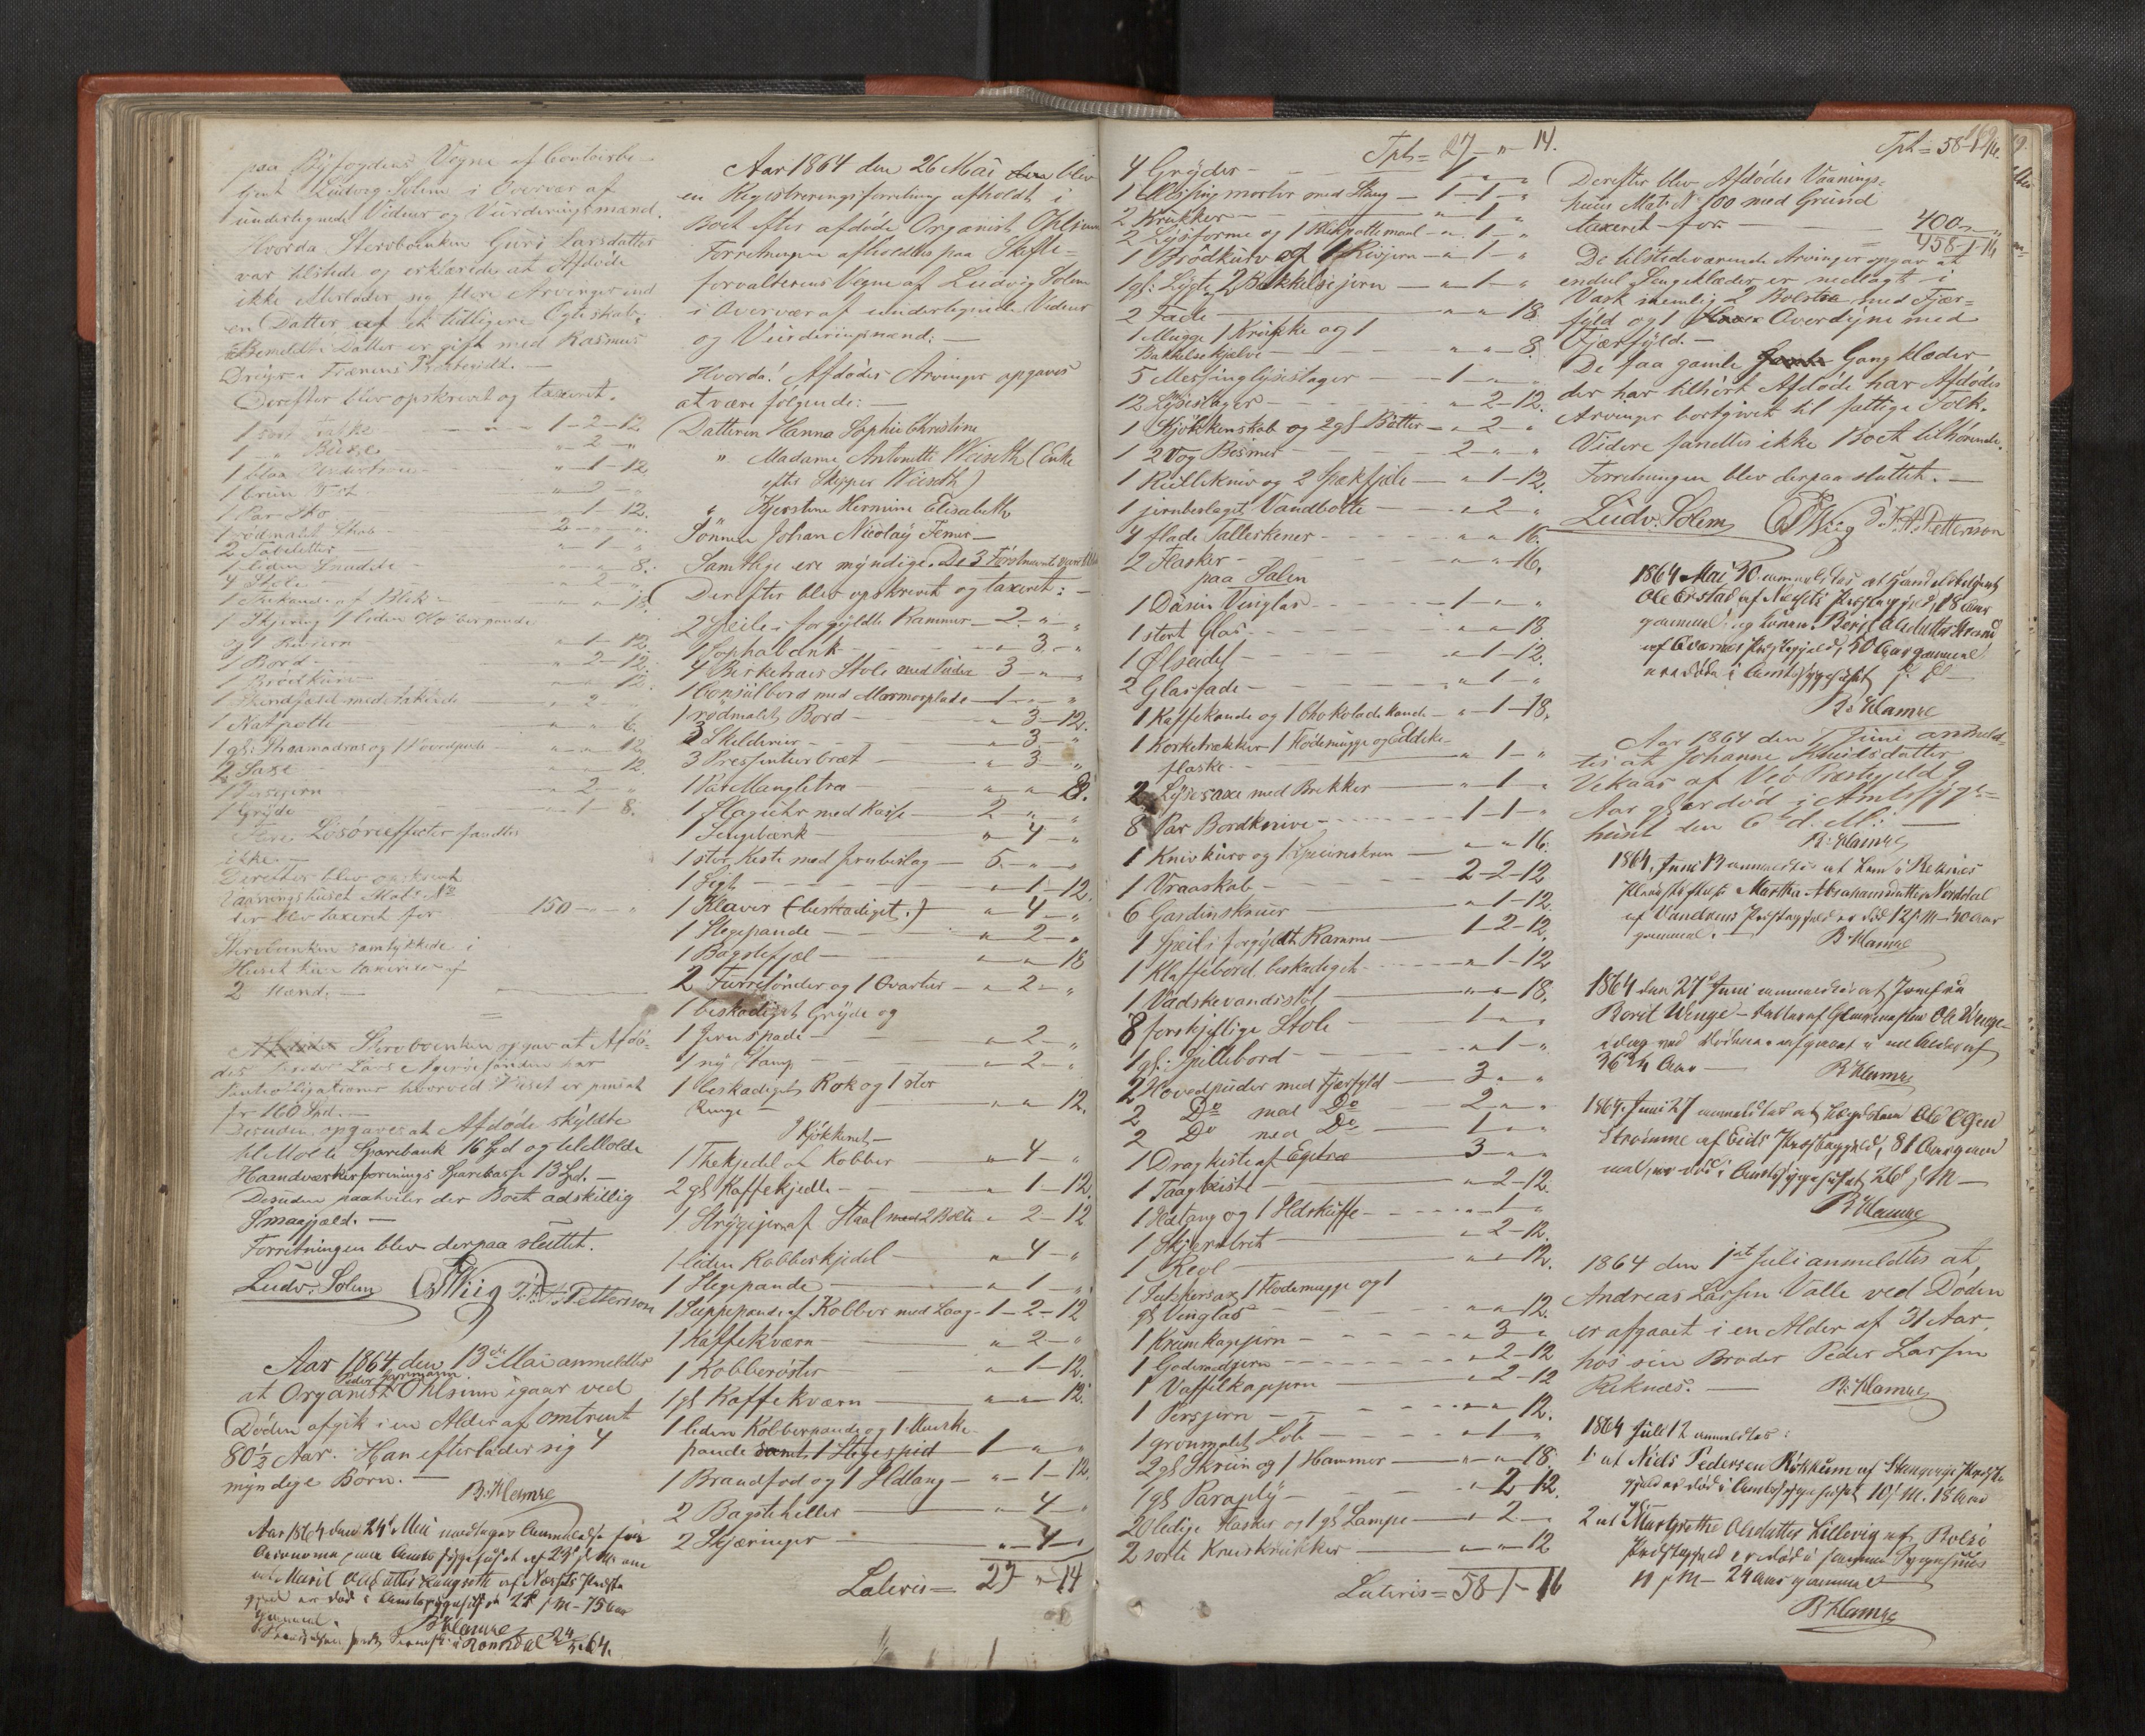 paa Byfogdens Vegne af Contoirbe-
tjent Ludvig Solem i Overvær af
undertegnede Vidner og Vurderingsmænd.
Hvorda Stervboenken Guri Larsdatter
var tilstede og erklærede at Afdøde
ikke efterlader sig flere Arvinger end
en Datter af et tidligere Egteskab.
Bemeldte Datter er gift med Rasmus
Derefter blev opskrevet og taxeret.
1 sort Trøie 1-2-12
1 " Buxe " 2 "
1 blaa Undertrøie " 1-12
1 brun Vest " 2 "
1 Par Sko 1-12.
1 rødmalet Skab 2 " "
2 Tabeletter " 1 "
1 liden " " 8.
4 Stole " 2 "
1 Thekande af Blik " " 18.
1 Skjæring 1 liden Kobberpande
og 1 Rivjern " 1-12.
1 Bord " 2-12.
1 Brødkurv " " 12.
1 Skindfæld med " 2 "
1 Natpotte " " 6.
1 gl: Straamadras og 1 Hovedpude " " 12.
1 Saxe " " 12.
1 Persjern " 2 "
1 Gryde " 1-8.
Flere Løsøreeffecter fandtes
ikke.
Derefter blev opskrevet
Vaaningshuset Mat: No
der blev taxeret for 150 " "
Stervboenken samtykkede i
Huset kun taxeres af
2 Mænd.
Afdøde Stervboenken opgav at Afdø-
des Lars har
Pantobligationer hvorved Huset er pansat
for 160 Spd.
Desuden opgaves at Afdøde skyldte
til Molde Sparebank 16 Spd og til Molde
Haandværkerforenings Sparekasse 13 Spd.
Desuden paahviler der Boet adskillig
Smaagjæld.
Forretningen blev derpaa sluttet.
Ludv. Solem Wiig Pettersson
Aar 1864 den 13de Mai anmeldtes
Peder
at Organist Ohlsinn igaar ved
Døden afgik i en Alder af omtrent
80½ Aar. Han efterlader sig 4
myndige Børn.
B: Klamre
Aar 1864 den 24de Mai modtages Anmeldelse fra
Oeconomen paa Amtssygehuset af 23de s M: om
at Marit Olsdatter Langseth af Næssets Præste
gjæld er død i Amtssygehuset 22 s M - 75 Aar
gammel.
B Klamre
Romsdal 24/5 64.
Aar 1864 den 26 Mai den blev
en Registreringsforretning afholdt i
Boet efter afdøde Organist Ohlsinn
Forretningen afholdtes paa Skifte-
forvalterens Vegne af Ludvig Solem
i Overvær af undertegnede Vidner
og Vurderingsmænd:
Hvorda! Afdødes Arvinger opgaves
at være følgende:
Datteren Hanna Sophie Christine
" Madame Antonette Weiseth (Enke
efter Skipper Weiseth)
" Kjerstine Hermine Elisabeth
Sønnen Johan Nicolay
Samtlige ere myndige. De 3 Førstnævnte
Derefter blev opskrevet og taxeret:
2 Speile i forgyldte Rammer 2 " "
1 Sophabænk " 3 "
4 Birketræes Stole med Puder 3 " "
1 Consolbord med Marmorplade 1 " "
1 rødmalet Bord " 3-12.
3 Skilderier " 3 "
3 Presenterbræt " 3 "
1 Par Mangletræ " " 8.
1 Slaguhr med Kasse 2 " "
1 Sengebænk " 4 "
1 stor Kiste med Jernbeslag 5 " "
1 Sigt " 1-12.
1 Klaver (beskadiget.) " 4 "
1 Stegepande " 2 "
1 Bagstefjæl " " 18
2 Furretønder og 1 Qvarter " 2 "
1 beskadiget Gryde og
1 Jernspade " 2 "
1 ny Stamp " 2 "
1 beskadiget Rok og 1 stor
Øunge " " 12.
I Kjøkkenet
1 Thekjedel af Kobber " 4 "
2 gl Kaffekjedle " 1-12.
1 Strygejern af Staal med 2 Bolte " 2-12
1 liden Kobberkjedel " 4 "
1 Stegepande " 1 "
1 Suppepande af Kobber med Laag 1-2-12
1 Kaffekværn " 2 "
1 Kobberøster " 1-12.
1 gl Kaffekværn " " 12.
1 liden Kobberpande og 1 Munke-
pande samt 1 Stegespid 1 " "
1 Brandfod og 1 Ildtang " 1-12.
2 Bagsteheller " 4 "
2 Skjæringer " 4 "
Lateris = 27 " 14
Tph = 27 " 14.
4 Gryder 1 " "
1 Messingmorter med Stang 1-1 "
2 Krukker " 1 "
2 Lysforme og 1 Blikpottemaal " 1 "
1 Brødkurv og 1 Rivjern " 1 "
1 gl: Lygte 2 Bakkelsejern " 1 "
2 Fade " " 18
1 Mugge 1 Krukke og 1
Bakkelsekjævle " " 8.
5 Messinglysestager 1 " "
12 Lysestager " 2-12.
1 Kjøkkenskab og 2 gl Bøtter " 2 "
1 2Vog Bismer 2 " "
1 Rullekniv og 2 Spækfjæle " 1-12.
1 jernbeslaget Vandbøtte " 2 "
4 flade Tallerkener " " 16.
2 Flasker " " 16.
paa Salen
1 Dusin Vinglas 1 " "
1 stort Glas " " 18
1 Ølseidel " 1-12.
2 Glasfade " 1 "
1 Kaffekande og 1 Chokoladekande " 1-18.
1 Korketrækker 1 Flødemugge og Eddike-
flaske " 1 "
2 Lysesaxe med Brikker " 1 "
8 Par Bordknive 1-1 "
1 Knivkurv og 1 " " 16.
1 Vraaskab 2-2-12
6 Gardinskruer " 1-12.
1 Speil i forgyldt Ramme 1-2-12.
1 Klaffebord beskadiget " 1-12
1 Vadskevandsstol " " 18.
8 forskjellige Stole 1 " "
1 gl: Spillebord " 1 "
2 Hovedpuder med Fjærfyld 3 " "
2 Do med Do 2 " "
2 Do med Do 1 " "
1 Dragkiste af Egetræ 3 " "
1 Taagkiste " 2-12.
1 Ildtang og 1 Ildskuffe " 1 "
1 Skjermbret " 2-12.
1 Reol " " 12.
1 Sukkersax 1 Flødemugge og 1
gl Vinglas " " 12.
1 Krumkagejern " 3 "
1 Goderaadjern " 2-12
1 Vaffelkagejern " 2-12
1 Persjern " " 12.
1 grønmalet Løb " 1 "
2 gl Skrin og 1 Hammer " " 18.
1 gl Paraply " 2 12.
20 ledige Flasker og 1 gl Lampe " 2 "
2 sorte Kruskrukker " " 12
Lateris = 58-1-16
Tph = 58-1-16.
Derefter blev Afdødes Vaanings-
huus Mat: N 100 med Grund
taxeret for 400 " "
458-1-16
De tilstedeværende Arvinger opgav at
endel Sengeklæder er nedlagt i
Vask nemlig 2 Bolster med Fjær-
fyld og 1 Overdyne med
Fjærfyld.
De faa gamle Gangklæder
der har tilhørt Afdøde har Afdødes
Arvinger bortgivet til fattige Folk.
Videre fandtes ikke Boet tilhørende.
Forretningen blev derpaa sluttet.
Ludv: Solem Wiig Pettersson
1864 Mai 30 anmeldtes at
Ole Erstad af Næssets Præstegjeld, 18 Aar
gammel; og Berit Olsdatter
af Præstegjeld, 50 Aar gammel
ere døde i Amtssygehuset
B: Klamre
Aar 1864 den 7 Juni anmeld-
tes at Johanne Knudsdatter
Vekaas af Veø Præstegjeld 9
Aar gl er død i Amtssyge-
huset den 6te d: M:
B: Klamre
1864, Juni 13 anmeldtes at Reknes
Pleiestiftelse Martha Abrahamsdatter Norddal
af Vanelvens Præstegjæld er død 12 s M - 40 Aar
gammel.
B: Klamre
1864 den 27de Juni anmeldtes at Jomfru
Berit Wenge - Datter af Ole Wenge
idag ved Døden er afgaaet i en Alder af
36¾ Aar
B: Klamre
1864, Juni 27 anmeldtes at Ole Olsen
Strømme af Eids Præstegjeld, 81 Aar gam
mel, er død i Amtssygehuset 26 s M
B: Klamre
1864 den 1ste Juli anmeldtes at
Andreas Larsen Valle ved Døden
er afgaaet i en Alder af 31 Aar,
hos sin Broder Peder Larsen
Reknæs.
B: Klamre
1864 Juli 12 anmeldtes:
1. at Niels Pedersen Røkkum af Stangvigs Præste
gjeld er død i Amtssygehuset 10 s M. 18 Aar
2 at Margrethe Olsdatter Lillevig af Bolsø
Præstegjeld er død i samme Sygehuus
11 s M - 24 Aar gammel
B Klamre